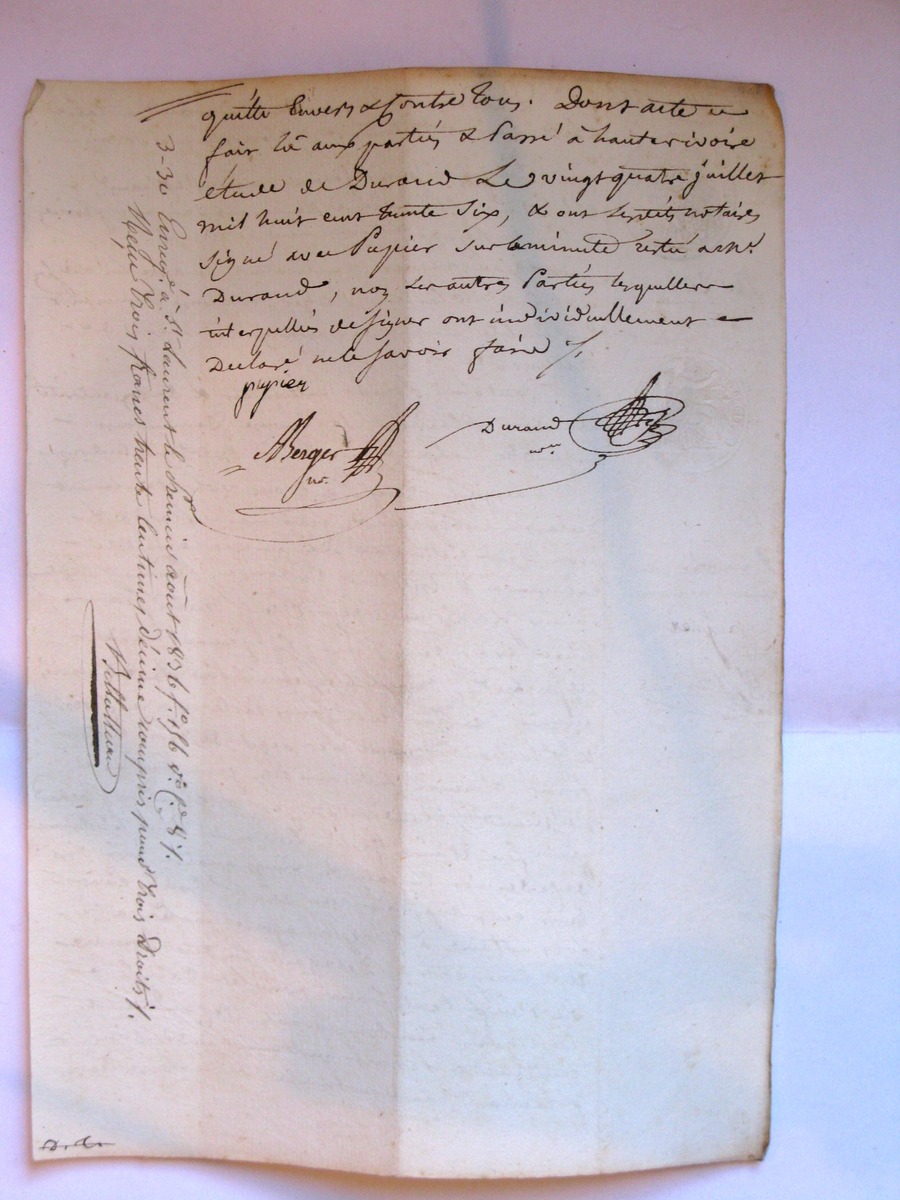 quitte Envers & Contre Tous. Dont acte
fait lû aux parties & Passé à hauterivoire
étude de Durand Le vingt quatre juillet
mil huit cent trente six, & ont lesdits notaires
signé avec Papier sur la minute resté a Me.
Durand, non Les autres Parties lesquelles
interpellés de signer ont individuellement
Declaré ne le savoir faire ./.
papier
ABerger
nre.
Durand
nre.
3-30 Enreg. à St. Laurent le premier août 1836 fo. 156 vo. Ce. 8 ./.
Reçu trois francs trente centimes décime compris pour trois Droits ./.